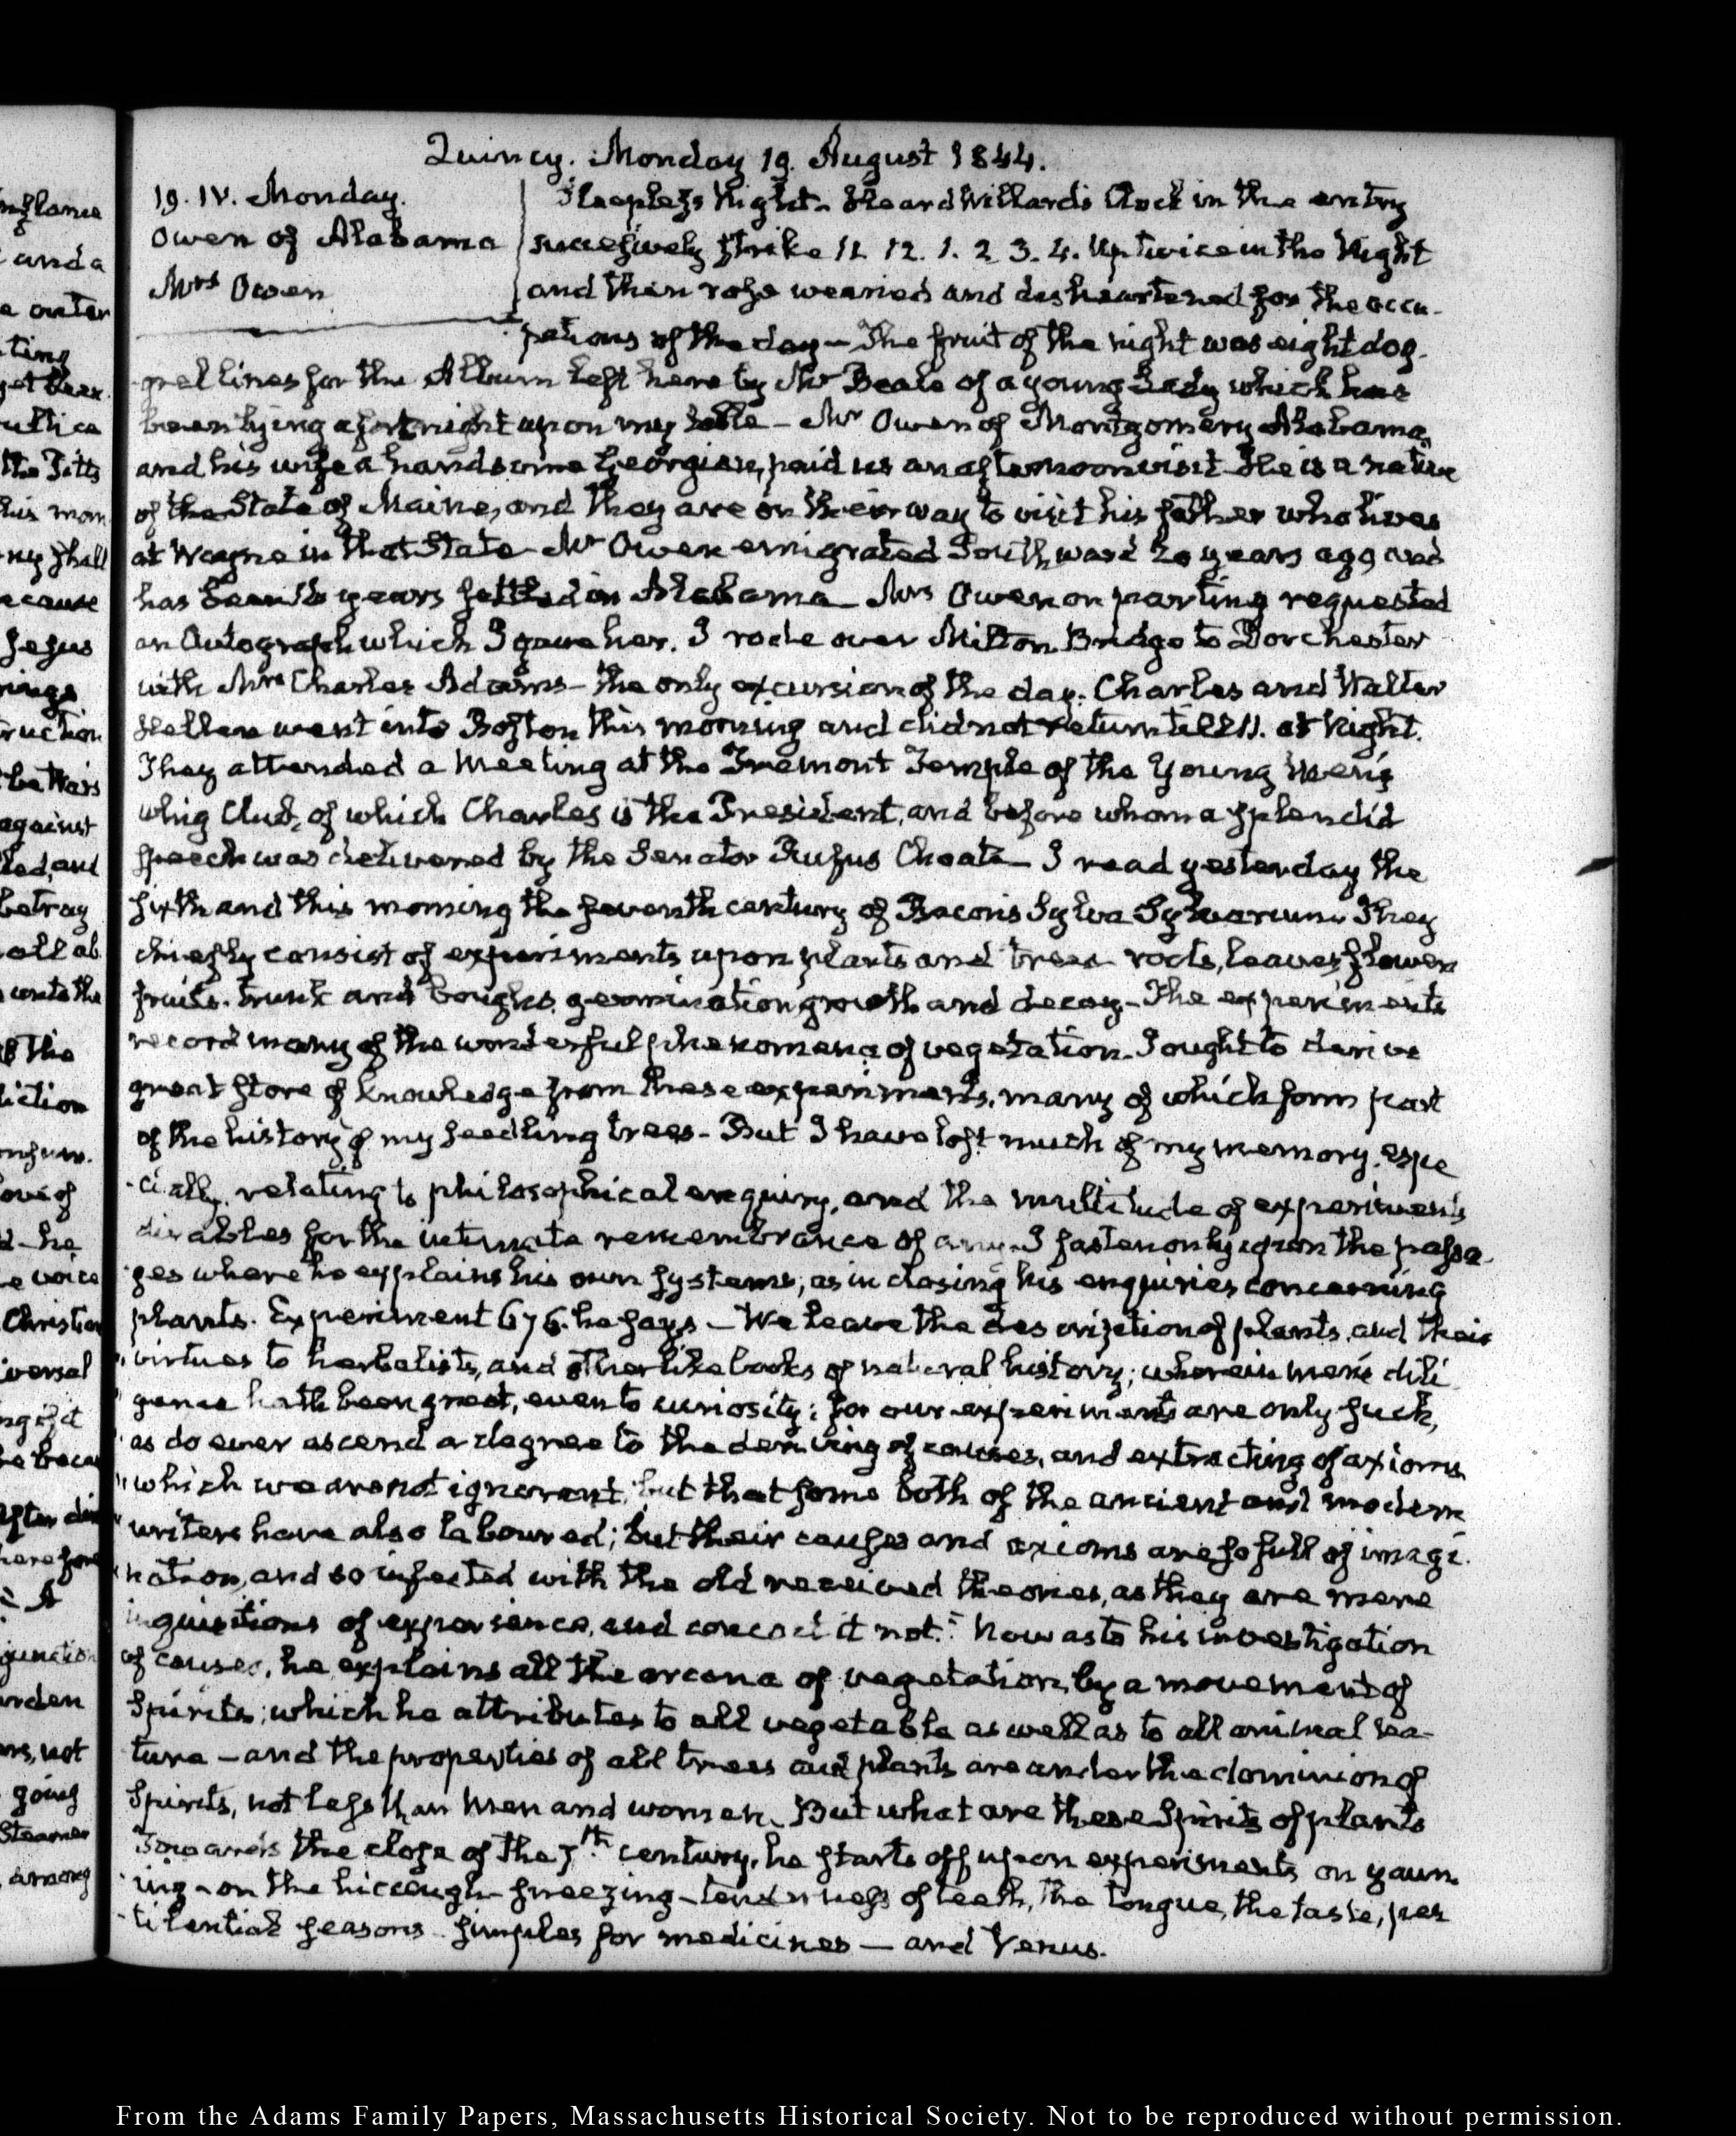 Quincy. Monday 19. August 1844.
19. IV. Monday.
Owen of Alabama
Mrs Owen
Sleepless Night. Heard Willard's Clock in the entry
successively strike 11. 12. 1. 2. 3. 4. Up twice in the Night
and then rose wearied and disheartened for the occu-
pations of the day — The fruit of the night was eight dog-
grel lines for the Album left here by Mr Beale of a young Lady which has
been lying a fortnight upon my table — Mr Owen of Montgomery Alabama,
and his wife a handsome Georgian, paid us an afternoon visit He is a native
of the State of Maine, and they are on their way to visit his father who lives
at Wayne in that State — Mr Owen emigrated Southward 20 years ago and
has been years settled in Alabama — Mrs Owen on parting requested
an Autograph which I gave her. I rode over Milton Bridge to Dorchester
with Mrs Charles Adams — the only excursion of the day. Charles and Walter
Hellen went into Boston this morning and did not return till 11. at Night.
They attended a Meeting at the Tremont Temple of the Young Men's
Whig Club, of which Charles is the President, and before whom a splendid
speech was delivered by the Senator Rufus Choate — I read yesterday the
sixth and this morning the seventh century of Bacon's Sylva Sylvarum. They
chiefly consist of experiments upon plants and trees roots, leaves, flowers
fruits. trunk and boughs, germination growth and decay — The experiments
record many of the wonderful phenomena of vegetation. I ought to derive
great store of knowledge from these experiments, many of which form part
of the history of my seedling trees — But I have lost much of my memory, espe
-cially, relating to philosophical enquiry, and the multitude of experiments
disables for the intimate remembrance of any. I fasten only upon the passa-
ges where he explains his own systems, as in closing his enquiries concerning
plants. Experiment 676. he says — We leave the description of plants, and their
"virtues to herbalists, and other like books of natural history; wherein men's dili
" gence hath been great, even to curiosity; for our experiments are only such,
" as do ever ascend a degree to the deriving of causes, and extracting of axioms
" which we are not ignorant, but that some both of the ancient and modern
" writers have also laboured; but their causes and axioms are so full of imagi-
" nation, and so infected with the old received theories, as they are mere
inquisitions of experience, and concoct it not." Now as to his investigation
of causes, he explains all the arcana of vegetation, by a movement of
Spirits; which he attributes to all vegetable as well as to all animal na-
ture — and the properties of all trees and plants are under the dominion of
Spirits, not less than Men and women. But what are these Spirits of plants
Towards the close of the 7th century, he starts off upon experiments on yawn-
-ing — on the hiccough — sneezing — tenderness of teeth, the tongue, the taste, pes
-tilential seasons — simples for medicines — and Venus.
From the Adams Family Papers, Massachusetts Historical Society. Not to be reproduced without permission.